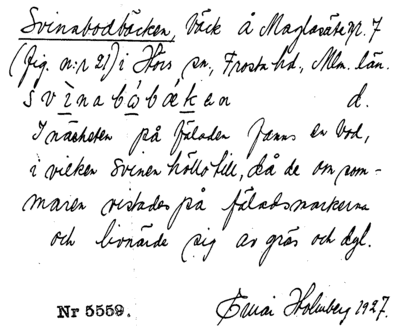 Svinabodbäcken, bäck å Maglasäte nr. 7
(fig. n:r 21) i Hörs sn., Frosta hd., Mlm. län.
svìnabóbäken d.
I nächeten på fäladen fanns en bod,
i vilken svinen höllo till, då de om som-
maren vistades på fäladsmarkerna
och livnärde sig av gräs och dyl.
Nr 5559. Holmberg 1927.